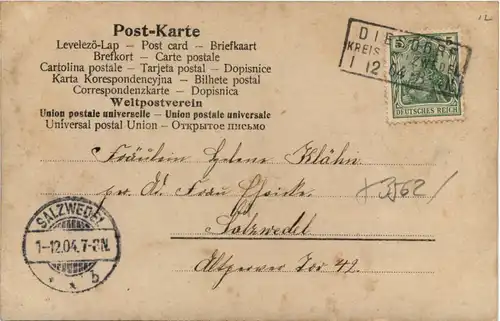 12
Post-Karte
Levelező-Lap – Post card – Briefkaart
Brefkort – Carte postale
Cartolina postale – Tarjeta postal – Dopisnice
Karta Korespondencyjna – Bilhete postal
Correspondenzkarte – Dopisnica
Weltpostverein
Union postale universelle – Union postale universale
Universal postal Union – Открытое письмо
DIESDORF
KREIS SALZWEDEL
1 12 04
DEUTSCHES REICH
Fräulein Helene Klähn
per Ad. Frau
3562
Salzwedel
Altperver Tor 42.
SALZWEDEL
1-12.04.7-8N.
* * b